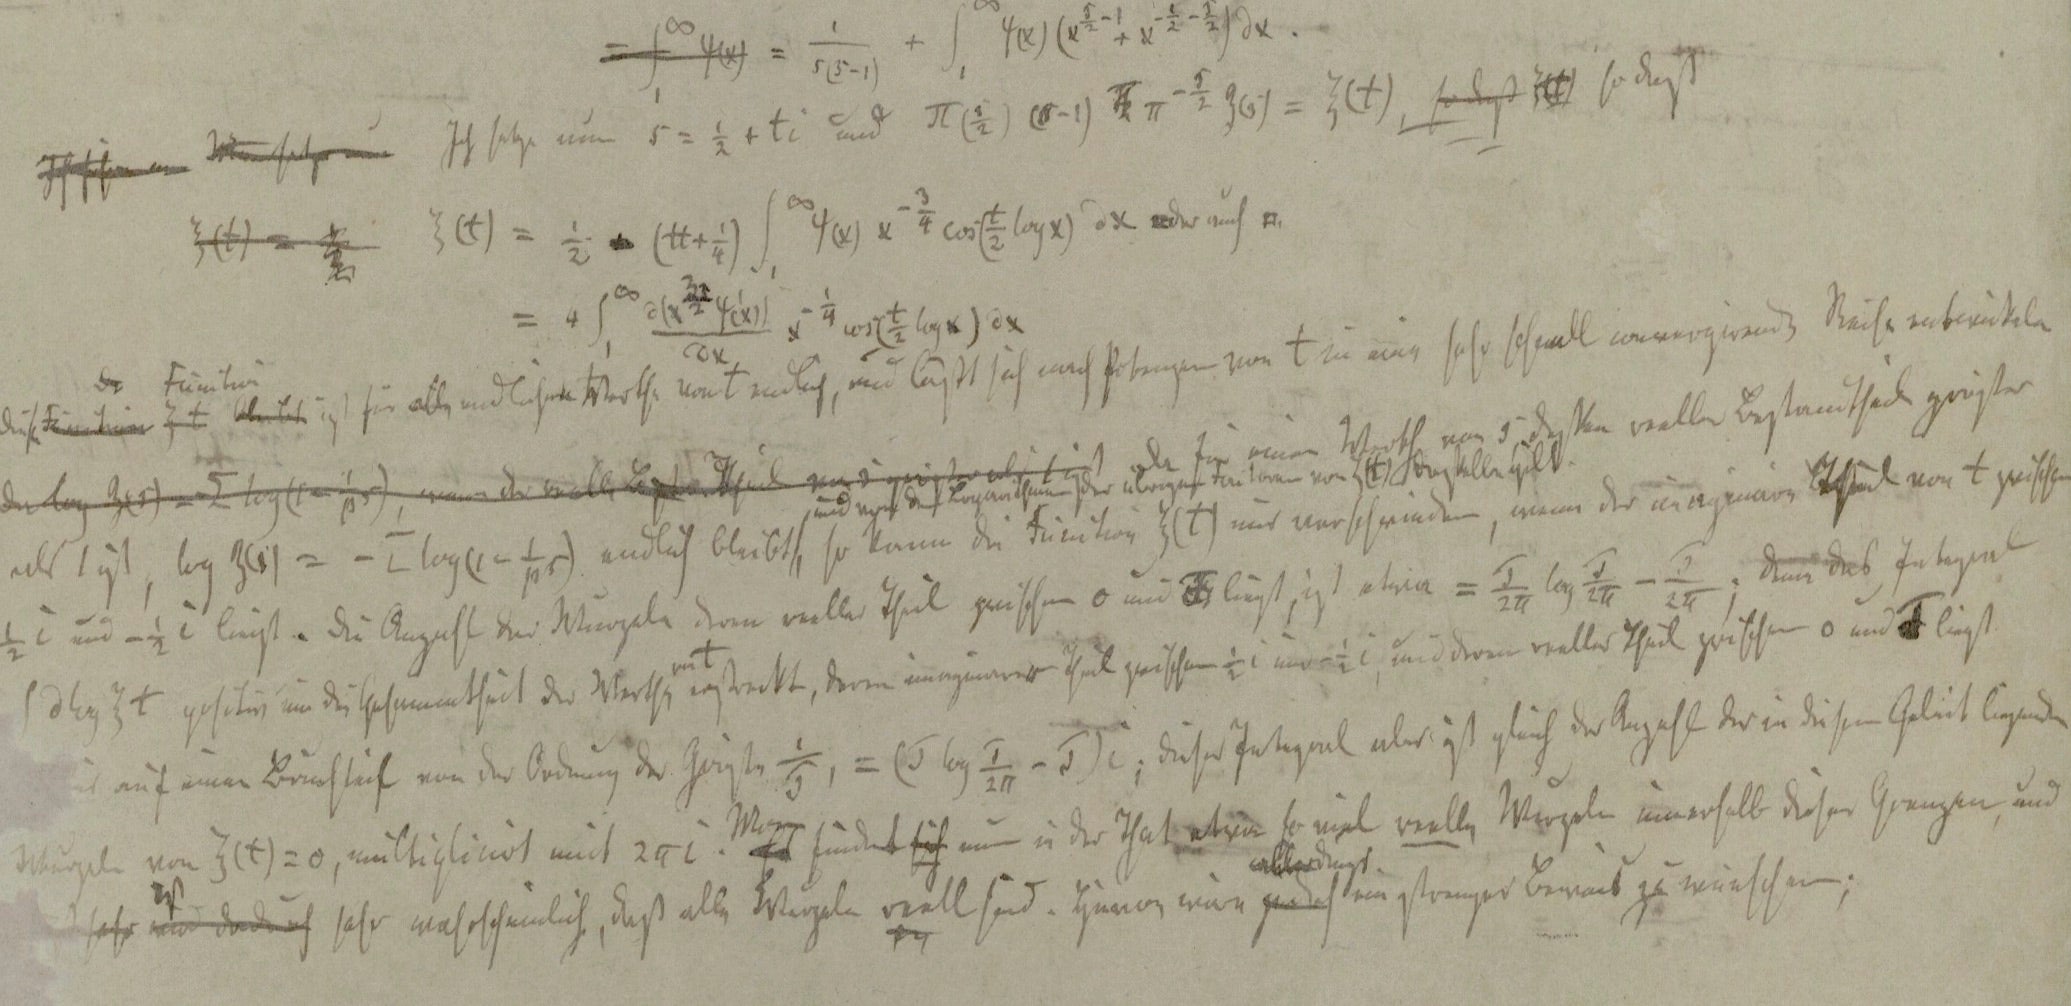 = ∫₁^∞ ψ(x) = 1/(s(s−1)) + ∫₁^∞ ψ(x) (x^(s/2 −1) + x^(−1/2 − s/2)) ∂x.
Ich setze nun s = ½ + ti und Π(s/2) (s−1) π^(−s/2) ζ(s) = ξ(t), so daß ξ(t) so daß
ξ(t) = ξ(t) = ½ − (tt+¼) ∫₁^∞ ψ(x) x^(−3/4) cos(t/2 log x) ∂x oder auch
= 4 ∫₁^∞ ∂(x^(3/2) ψ'(x))/∂x x^(−1/4) cos(t/2 log x) ∂x
Function
Diese Function ξt bleibt ist für alle endlichen Werthe von t endlich, und läßt sich nach Potenzen von t in eine sehr schnell convergirende Reihe entwickeln
der log ζ(s) = −Σ log(1 − 1/p^s), wenn der reelle Theil von s größer als 1 ist Da für einen Werth von s, dessen reeller Bestandtheil größer
und von den Logarithmen der übrigen Factoren von ξ(t) dasselbe gilt.
als 1 ist, log ζ(s) = −Σ log(1 − 1/p^s) endlich bleibt, so kann die Function ξ(t) nur verschwinden, wenn der imaginäre Theil von t zwischen
½ i und −½ i liegt. Die Anzahl der Wurzeln deren reeller Theil zwischen 0 und T liegt, ist etwa = T/2π log T/2π − T/2π; denn das Integral
von t
∫ ∂ log ξt positiv um die Gesammtheit der Werthe erstreckt, deren imaginärer Theil zwischen ½ i und −½ i, und deren reeller Theil zwischen 0 und T liegt
ist auf einen Bruchtheil von der Ordnung der Größe 1/T, = (T log T/2π − T) i; dieses Integral aber ist gleich der Anzahl der in diesem Gebiet liegenden
Wurzeln von ξ(t) = 0, multiplicirt mit 2πi. Man findet sich nun in der That etwa so viel reelle Wurzeln innerhalb dieser Grenzen, und
es ist sehr und dadurch sehr wahrscheinlich, daß alle Wurzeln reell sind. Hiervon wäre allerdings jedoch ein strenger Beweis zu wünschen;